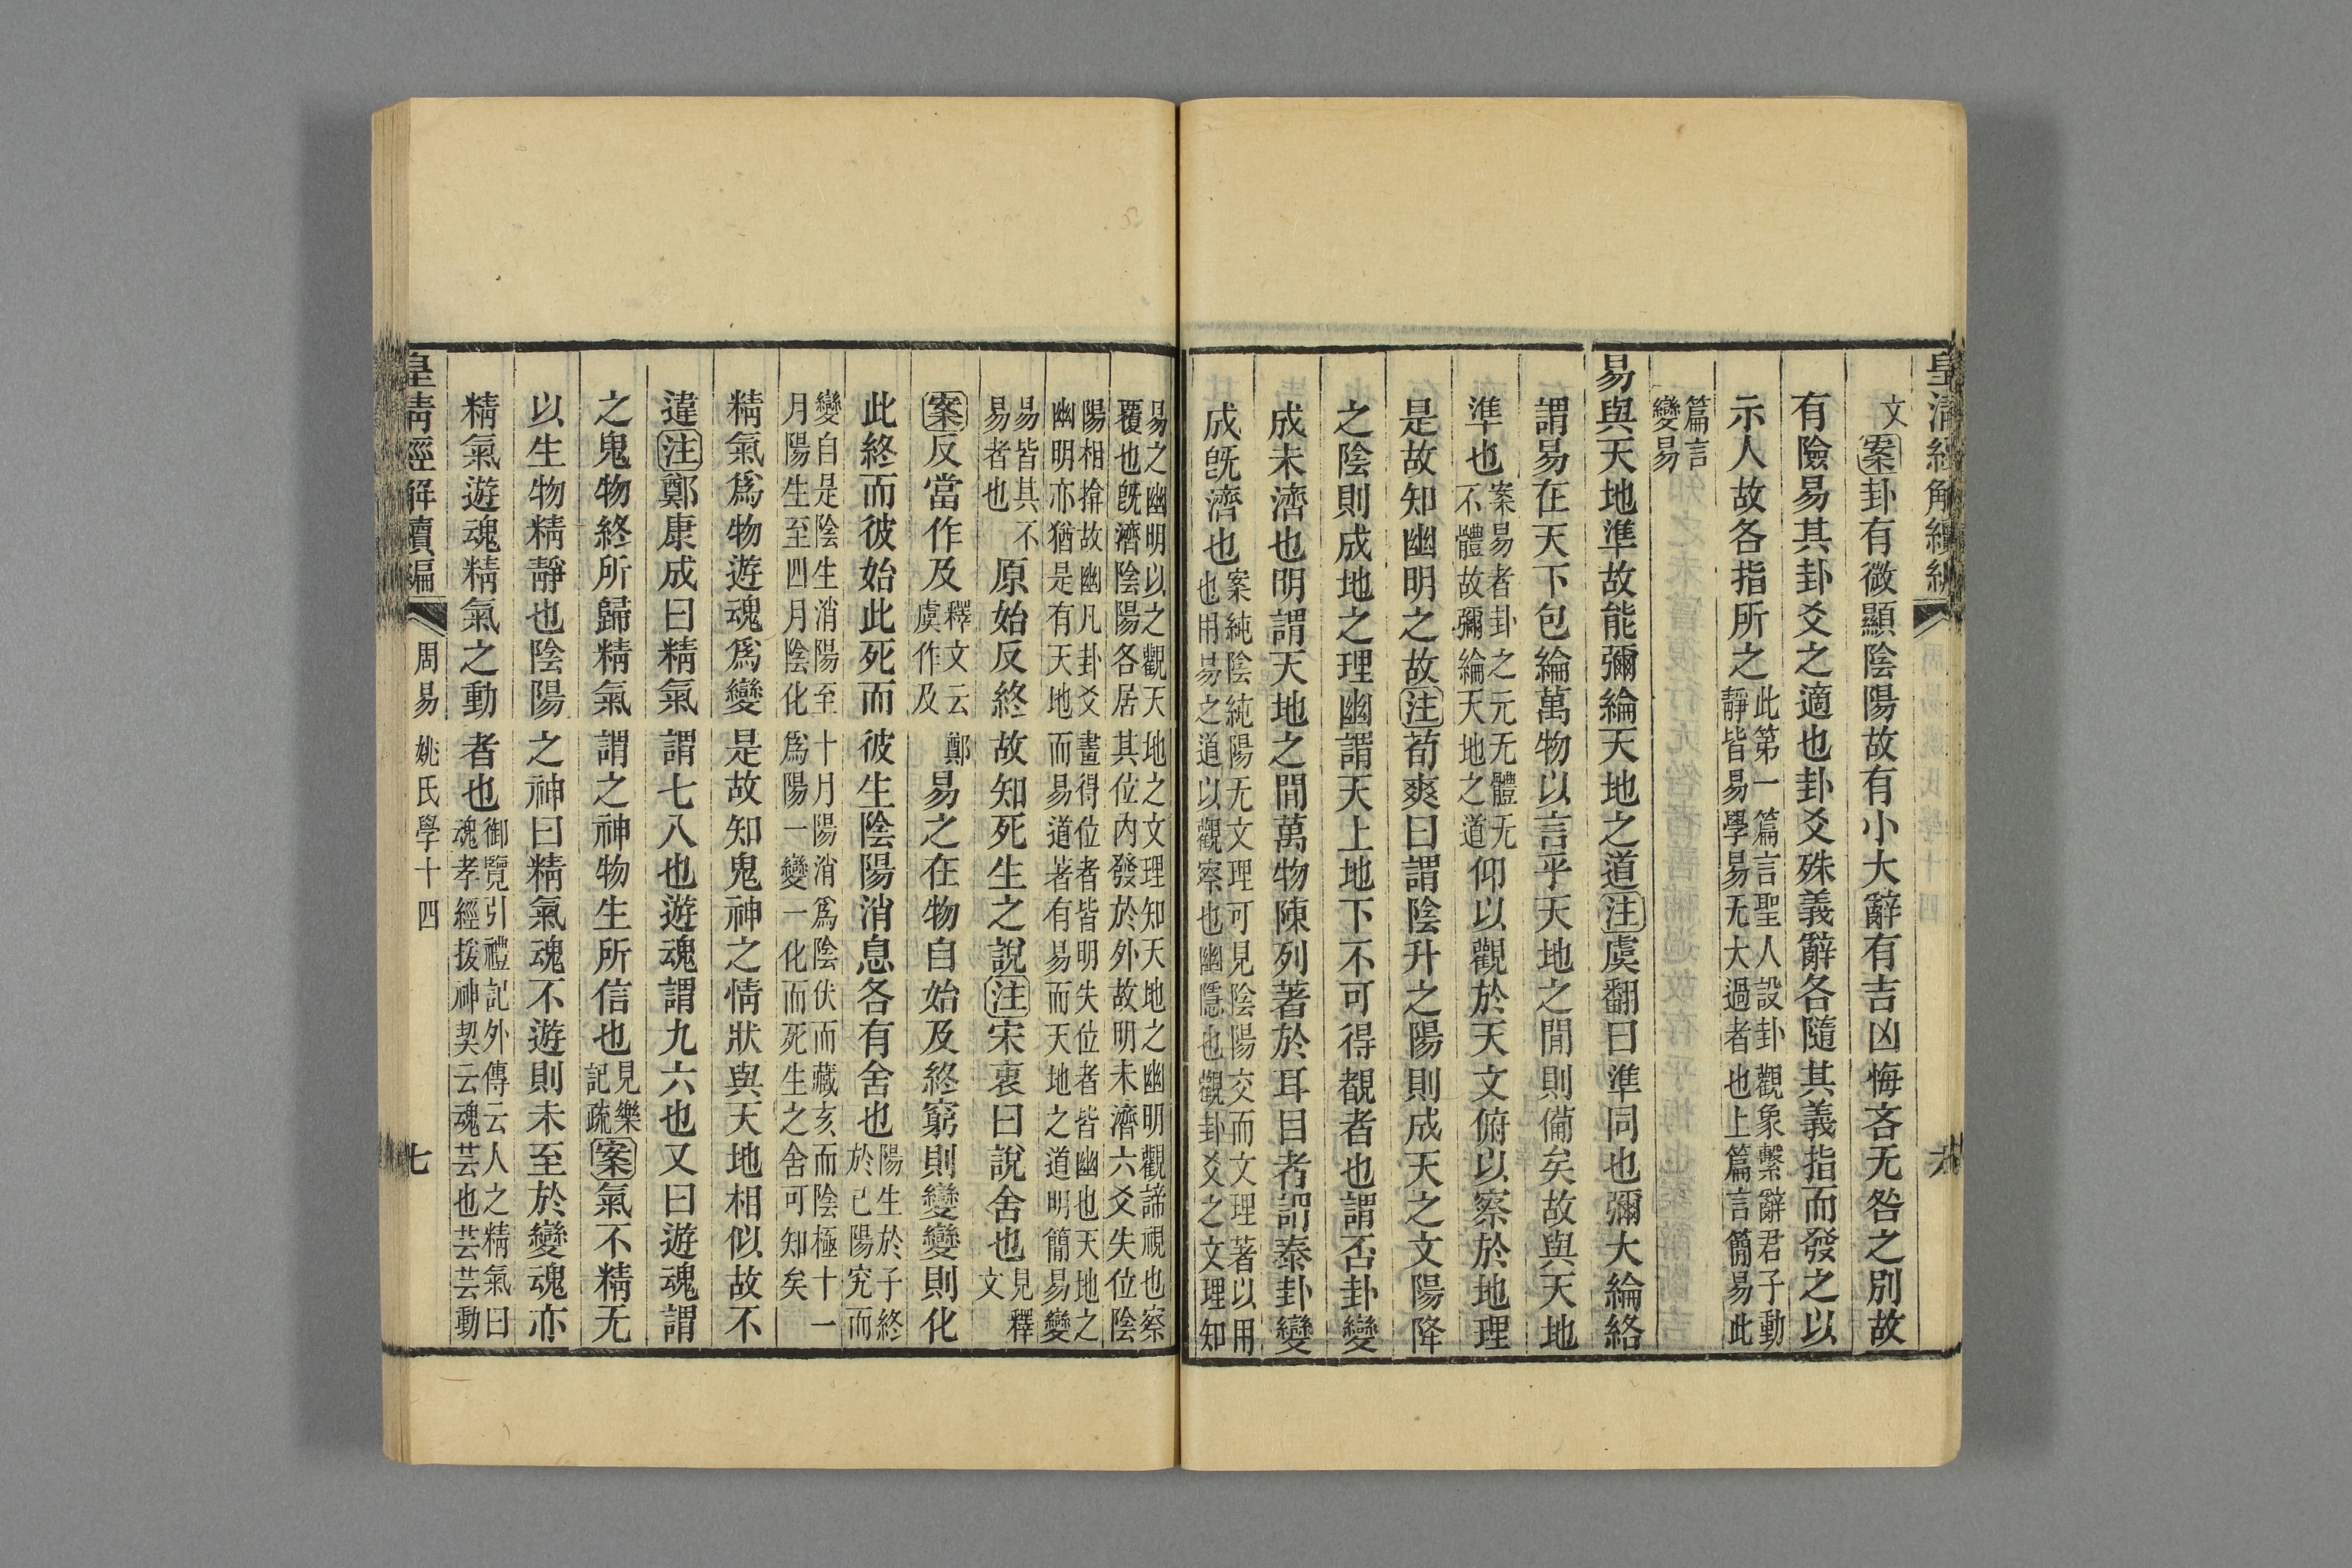 皇清經解續編
六
文案卦有微顯陰陽故有小大辭有吉凶悔吝无咎之別故
有險易其卦爻之適也卦爻殊義辭各隨其義指而發之以
示人故各指所之此第一篇言聖人設卦觀象繫辭君子動
靜皆易學易无大過者也上篇言簡易此
篇言
變易
易與天地準故能彌綸天地之道注虞翻曰準同也彌大綸絡
謂易在天下包綸萬物以言乎天地之閒則備矣故與天地
準也案易者卦之元无體无
不體故彌綸天地之道仰以觀於天文俯以察於地理
是故知幽明之故注荀爽曰謂陰升之陽則成天之文陽降
之陰則成地之理幽謂天上地下不可得覩者也謂否卦變
成未濟也明謂天地之閒萬物陳列著於耳目者謂泰卦變
成旣濟也案純陰純陽无文理可見陰陽交而文理著以用
也用易之道以觀察也幽隱也觀卦爻之文理知
易之幽明以之觀天地之文理知天地之幽明觀諦視也察
覆也旣濟陰陽各居其位內發於外故明未濟六爻失位陰
陽相揜故幽凡卦爻畫得位者皆明失位者皆幽也天地之
幽明亦猶是有天地而易道著有易而天地之道明簡易變
易皆其不
易者也原始反終故知死生之說注宋衷曰說舍也見釋
文
案反當作及釋文云鄭
虞作及易之在物自始及終窮則變變則化
此終而彼始此死而彼生陰陽消息各有舍也陽生於子終
於已陽究而
變自是陰生消陽至十月陽消爲陰伏而藏亥而陰極十一
月陽生至四月陰化爲陽一變一化而死生之舍可知矣
精氣爲物遊魂爲變是故知鬼神之情狀與天地相似故不
違注鄭康成曰精氣謂七八也遊魂謂九六也又曰遊魂謂
之鬼物終所歸精氣謂之神物生所信也見樂
記疏案氣不精无
以生物精靜也陰陽之神曰精氣魂不遊則未至於變魂亦
精氣遊魂精氣之動者也御覽引禮記外傳云人之精氣曰
魂孝經援神契云魂芸也芸芸動
皇清經解續編
周易姚氏學十四
七